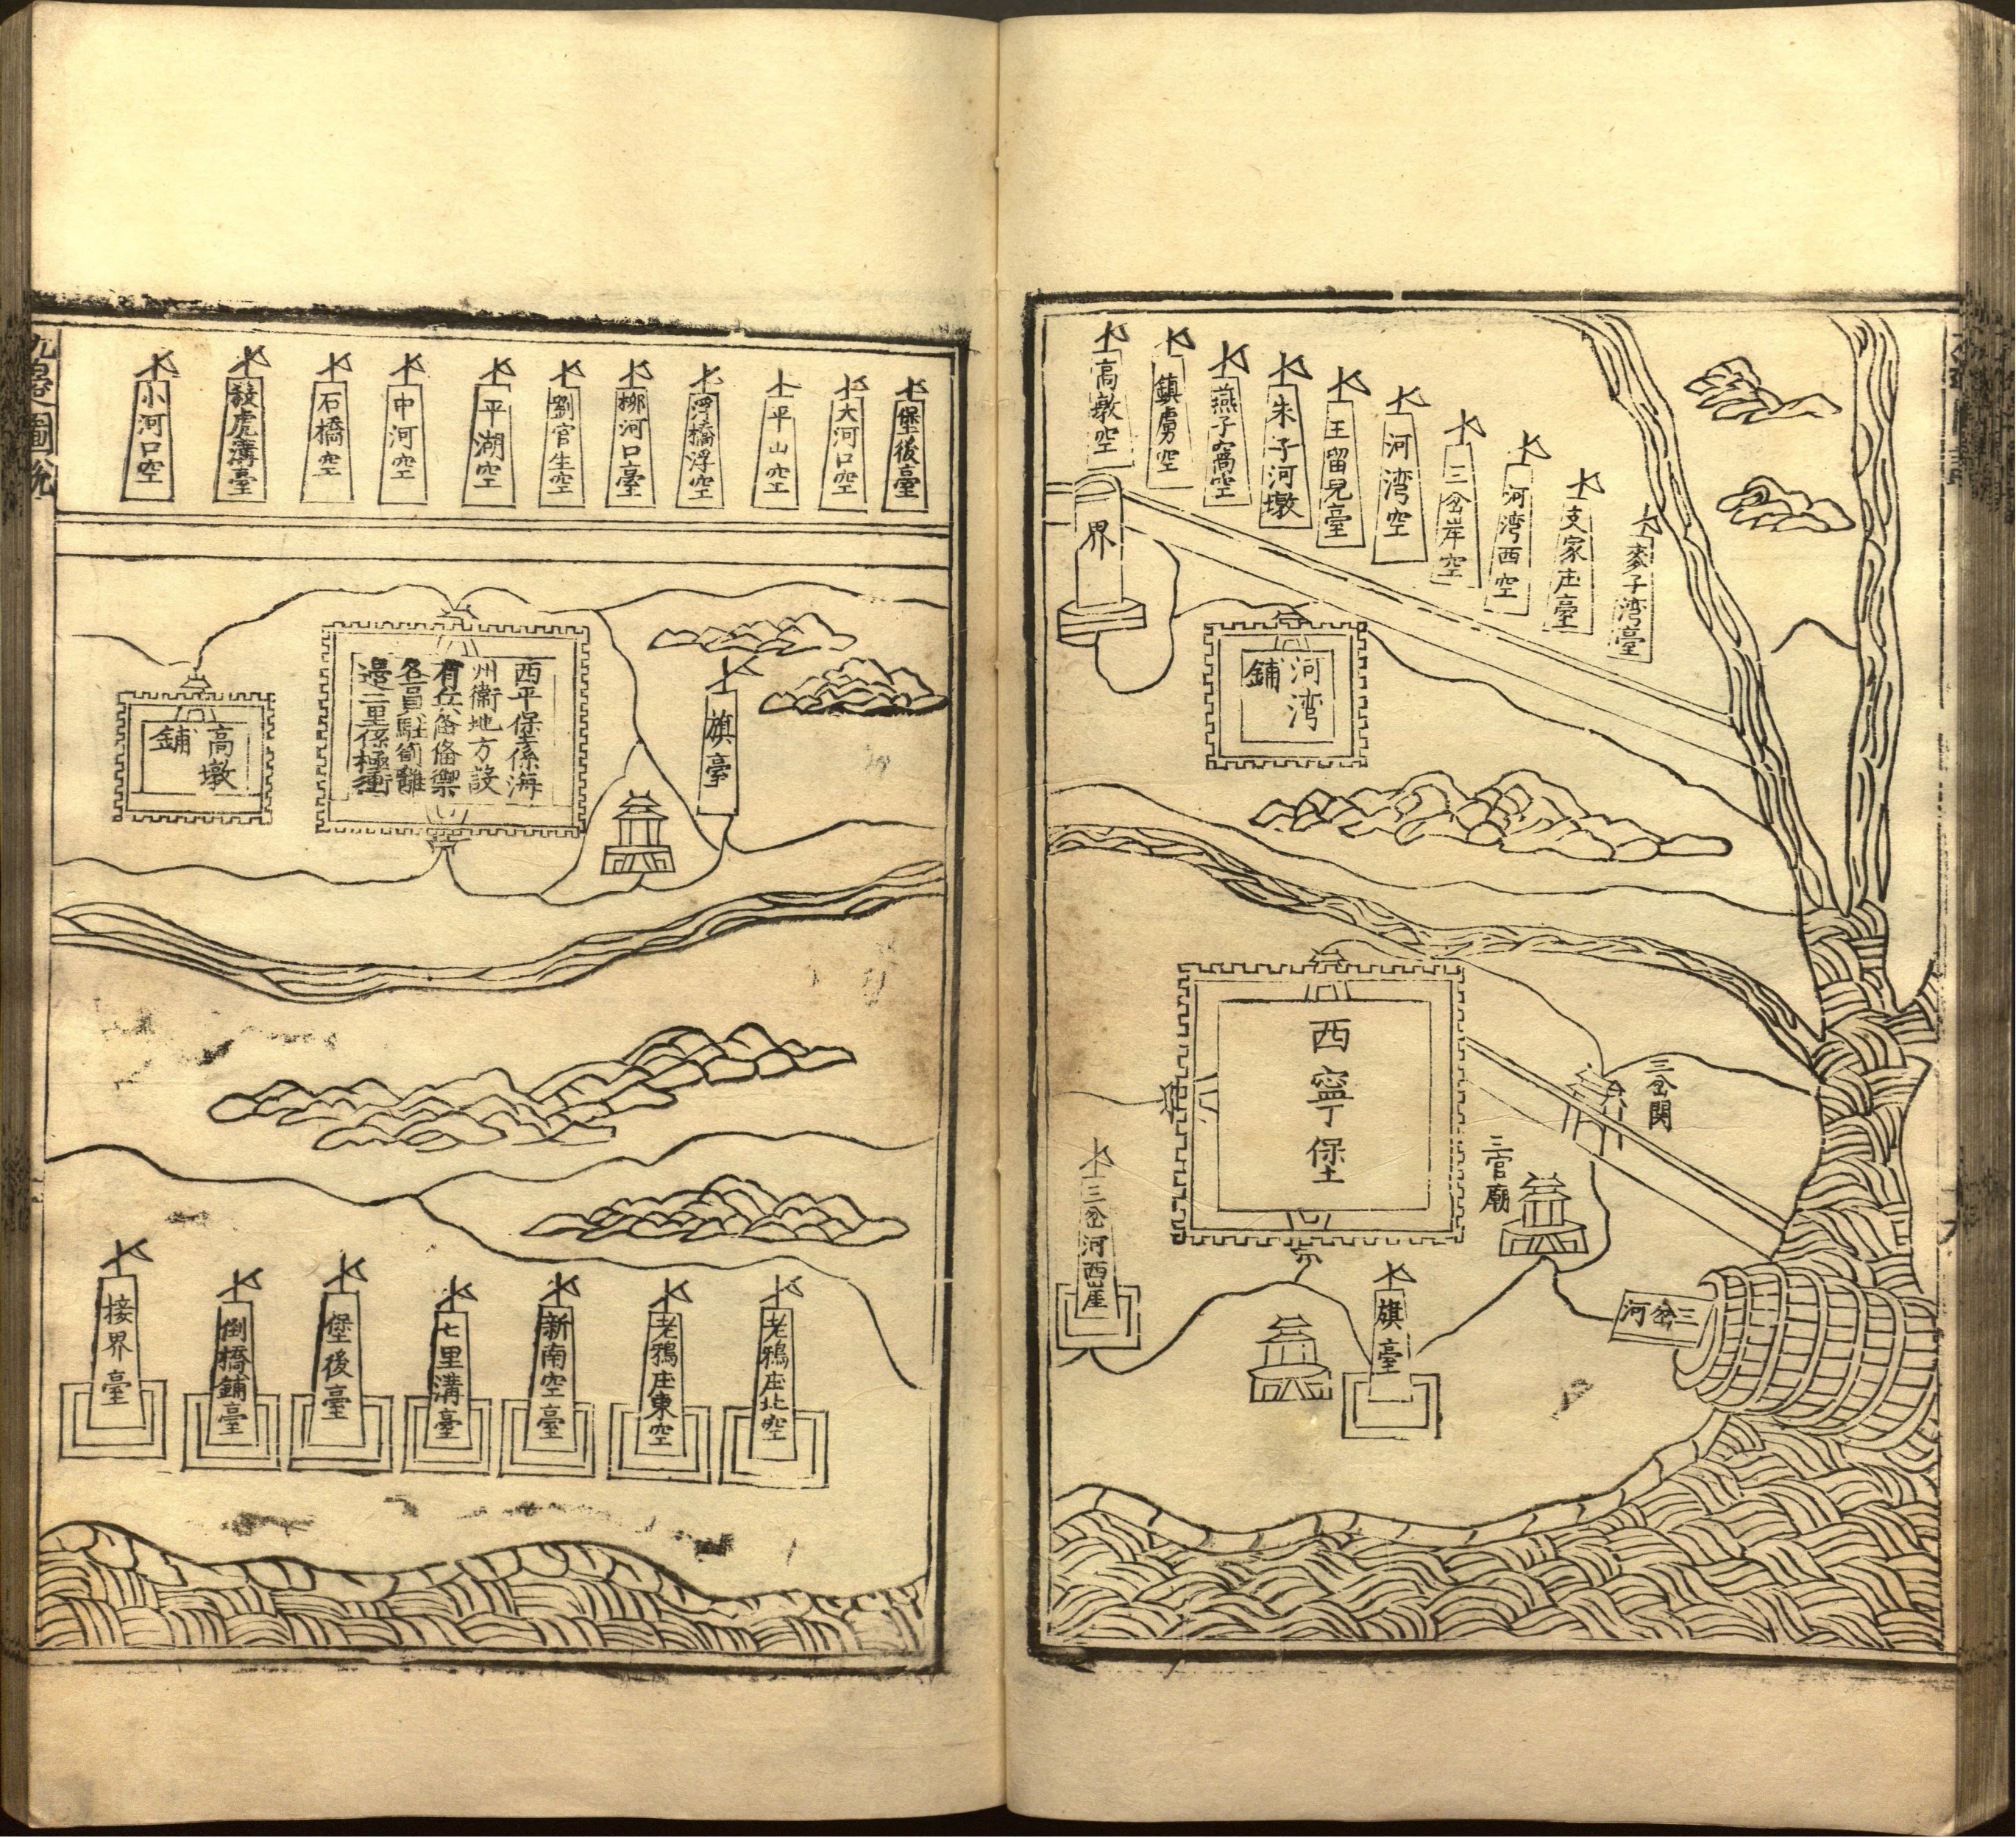 麥子湾臺
支家庄臺
河湾西空
三岔岸空
河湾空
王留兒臺
朱子河墩
燕子窩空
鎮虜空
高墩空
界
河湾
鋪
三岔関
西寧堡
三官廟
三岔河
旗臺
三岔河西崖
堡後臺
大河口空
平山空
浮橋浮空
柳河口臺
劉官生空
平湖空
中河空
石橋空
殺虎溝臺
小河口空
旗臺
西平堡係海
州衞地方設
有兵俻俻禦
各員駐劄離
邊二里係極衝
高墩
鋪
老鴉庄北空
老鴉庄東空
新南空臺
七里溝臺
堡後臺
倒橋鋪臺
接界臺
九邊圖說